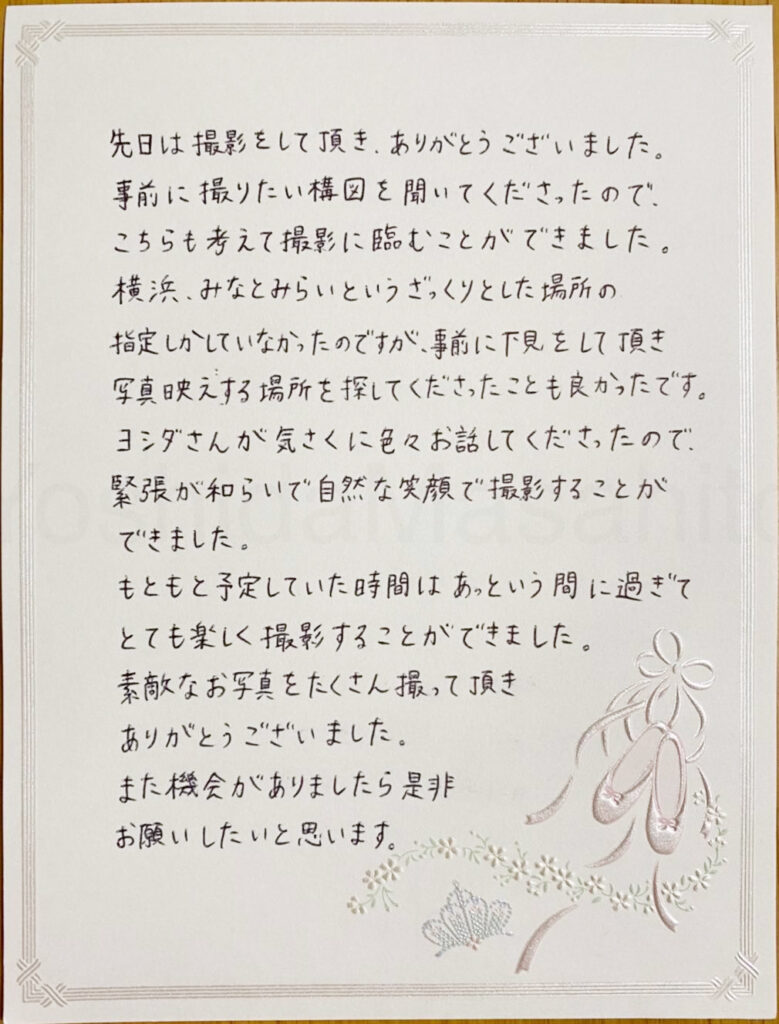 先日は撮影をして頂き、ありがとうございました。
事前に撮りたい構図を聞いてくださったので、
こちらも考えて撮影に臨むことができました。
横浜、みなとみらいというざっくりとした場所の
指定しかしていなかったのですが、事前に下見をして頂き
写真映えする場所を探してくださったことも良かったです。
ヨシダさんが気さくに色々お話してくださったので、
緊張が和らいで自然な笑顔で撮影することが
できました。
もともと予定していた時間はあっという間に過ぎて
とても楽しく撮影することができました。
素敵なお写真をたくさん撮って頂き
ありがとうございました。
また機会がありましたら是非
お願いしたいと思います。